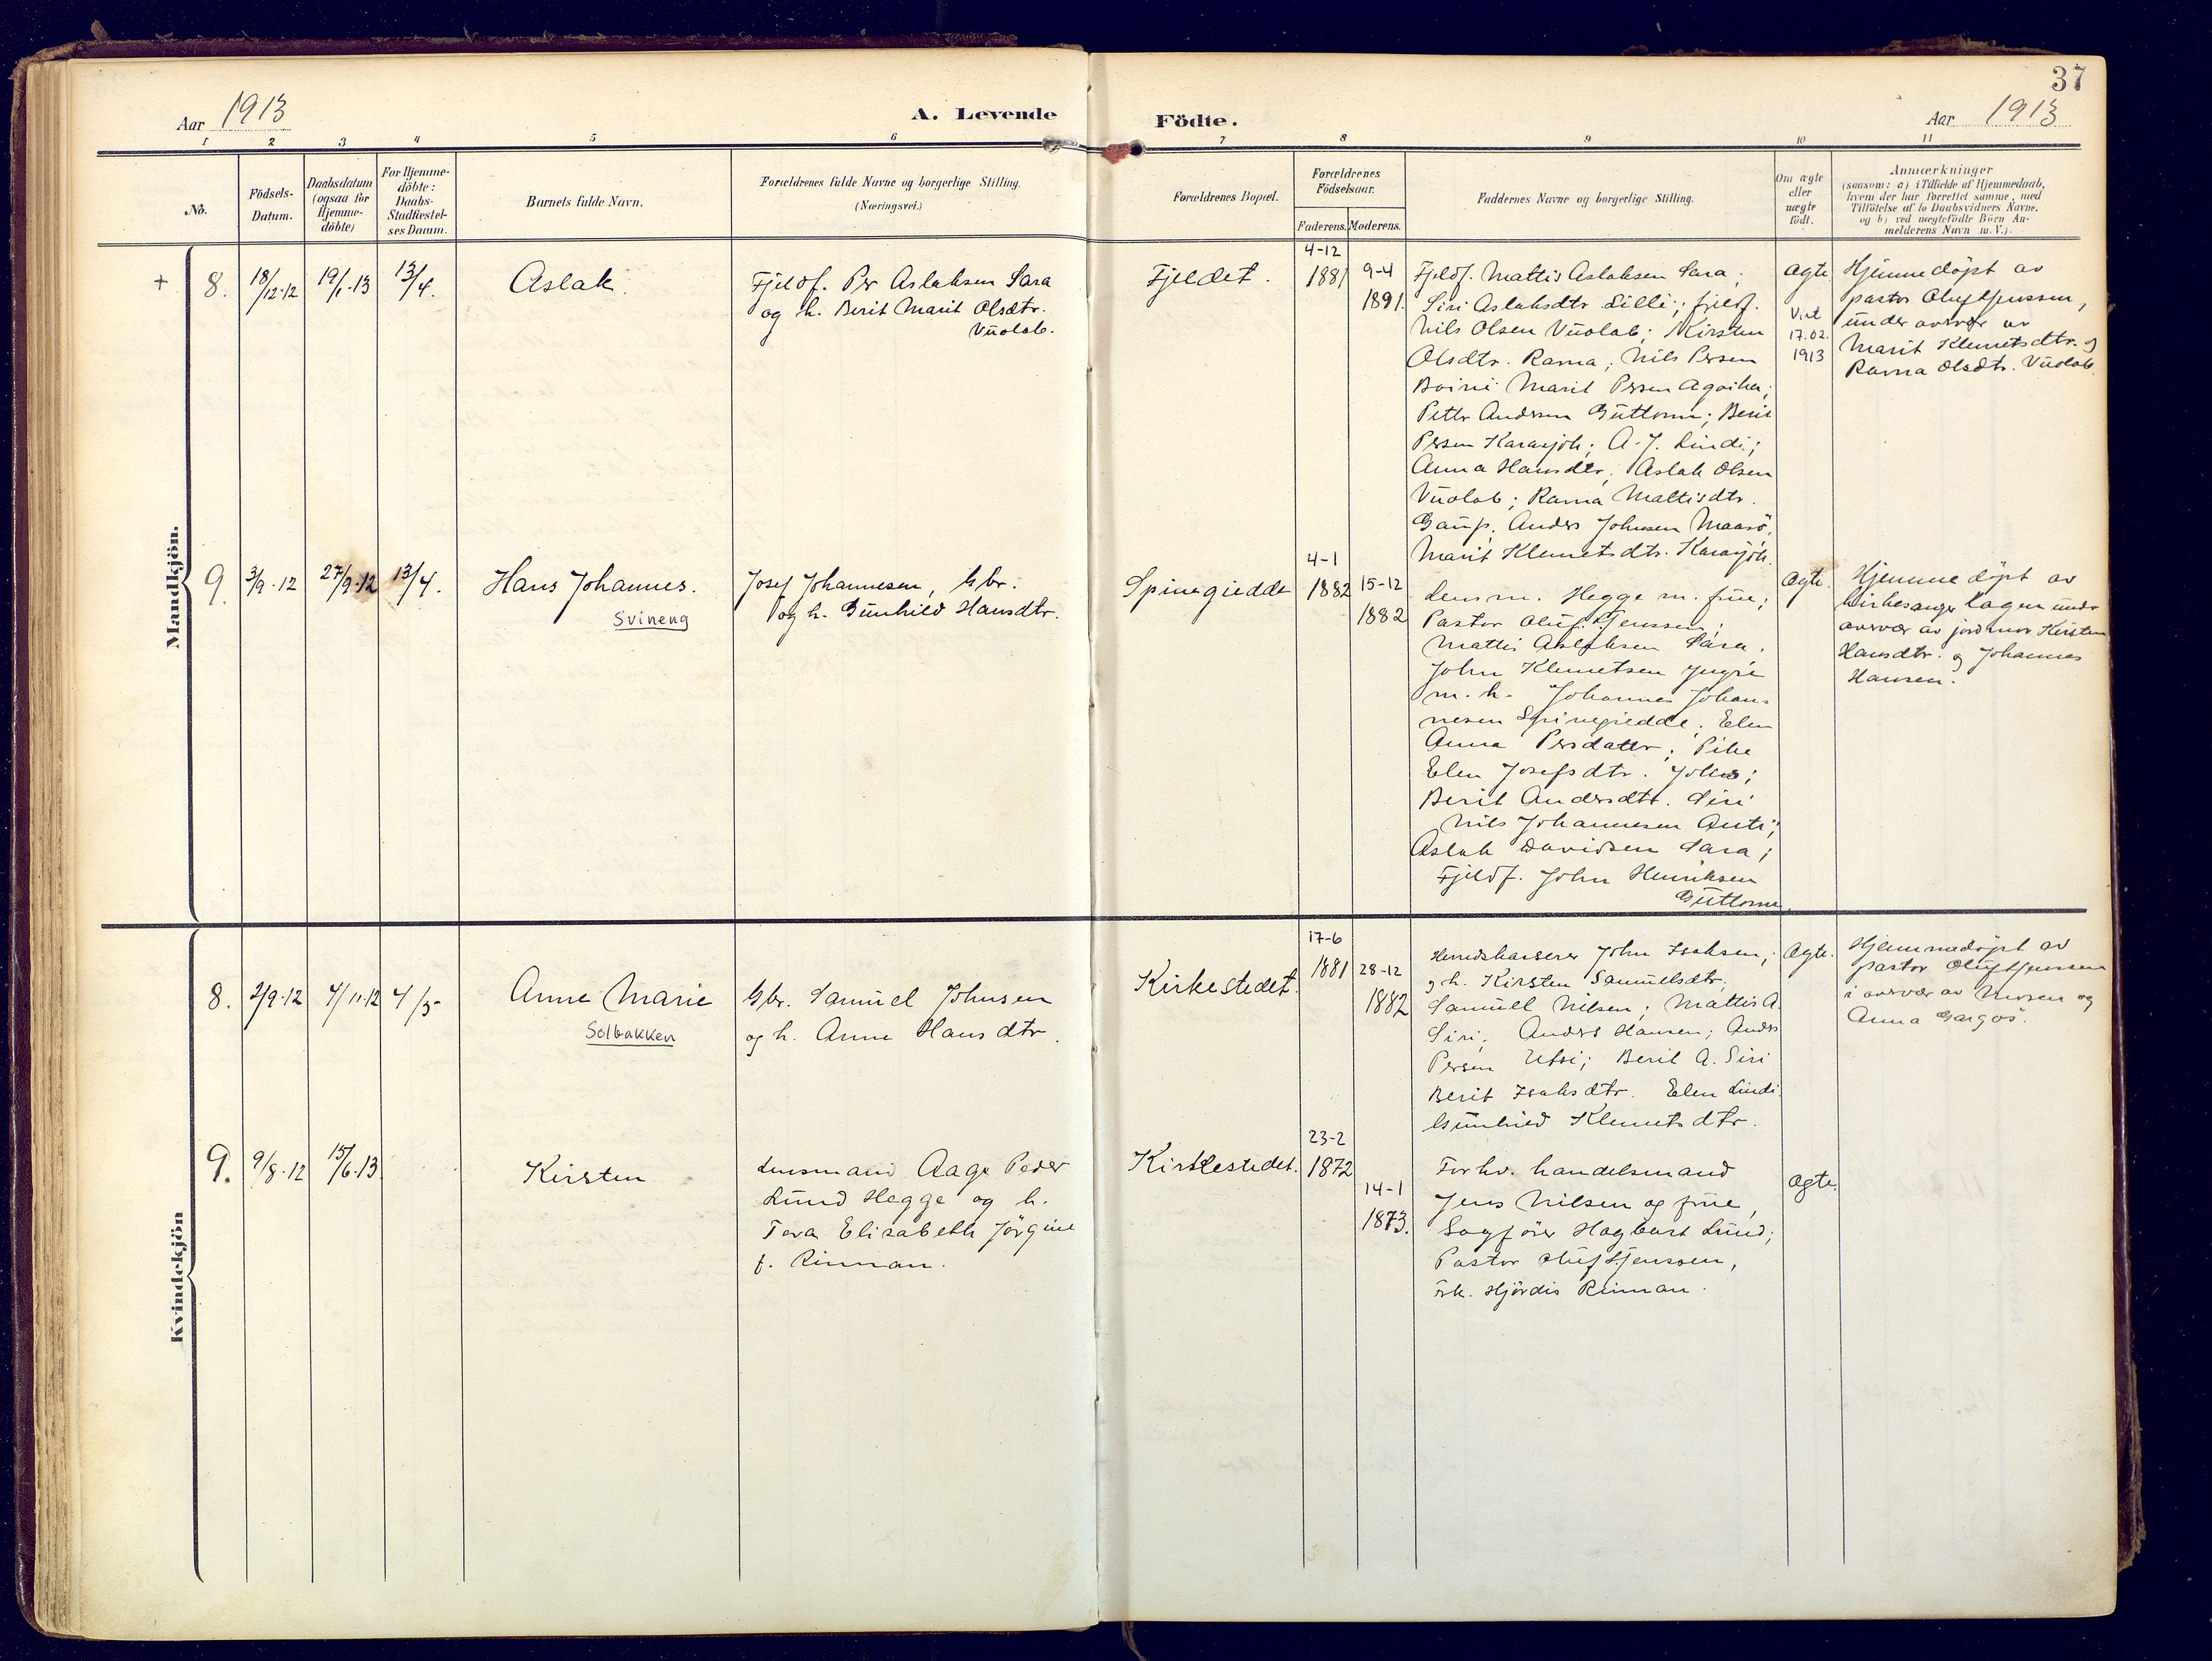 37
Aar 1913
A. Levende
Födte.
Aar 1913
1 2 3 4 5 6 7 8 9 10 11
No.
Födsels-
Datum.
Daabsdatum
(ogsaa for
Hjemme-
döbte)
For Hjemme-
döbte:
Daabs-
Stadfæstel-
ses Datum.
Barnets fulde Navn.
Forældrenes fulde Navne og borgerlige Stilling.
(Næringsvei.)
Forældrenes Bopæl.
Forældrenes
Födselsaar.
Faderens. Moderens.
Faddernes Navne og borgerlige Stilling.
Om ægte
eller
uægte
födt.
Anmærkninger
(saasom: a) i Tilfælde af Hjemmedaab,
hvem der har forrettet samme, med
Tilföielse af to Daabsvidners Navne,
og b) ved uægtefödte Börn An-
melderens Navn m.V.).
Mandkjön.
+ 8. 18/12-12 19/1-13 13/4.
Aslak.
Fjeldf. Per Aslaksen Sara
og h. Berit Marit Olsdtr.
Vuolab.
Fjeldet.
4-12
1881
9-4
1891.
Fjeldf. Mattis Aslaksen Sara;
Siri Aslaksdtr. Lilli; fjeldf.
Nils Olsen Vuolab; Kirsten
Olsdtr. Rama; Nils Persen
Boini Marit Persen
Petter Andersen Guttorm; Berit
Persen Karasjok; A. J. Lindi;
Anna Hansdtr. Aslak Olsen
Vuolab; Rama Mattisdtr.
Gaup. Anders Johnsen Maasö,
Marit Klemetsdtr. Karasjok.
ægte
Viet
17.02.
1913
Hjemmedöpt av
pastor Oluf Hjenssen,
under overvær av
Marit Klemetsdtr. og
Rama Olsdtr. Vuolab.
9. 3/9-12 27/9-12 13/4.
Hans Johannes.
Svineng
Josef Johannesen, Gbr.
og h. Gunhild Hansdtr.
Spinegiedde
4-1
1882
15-12
1882
Lensm. Hegge m. frue;
Pastor Oluf Hjenssen;
Mattis Aslaksen Sara.
John Klemetsen
m. h. Johannes Johan-
nesen Spinegiedde. Elen
Anna Persdatter; Pike
Elen Josefsdtr.
Berit Andersdtr. Siri
Nils Johannesen Anti;
Aslak Davidsen Sara;
Fjeldf. John Henriksen
Guttorm.
ægte.
Hjemmedöpt av
kirkesanger Lagen under
overvær av jordmor Kirsten
Hansdtr. og Johannes
Hansen.
Kvindekjön
8. 2/9-12 4/11-12 4/5-
Anne Marie
Solbakken
Gbr. Samuel Johnsen
og h. Anne Hansdtr.
Kirkestedet.
17-6
1881
28-12
1882
Herredskasserer John Isaksen;
og h. Kirsten Samuelsdtr.
Samuel Nilsen; Mattis A.
Siri; Anders Hansen; Anders
Persen Utsi; Berit A. Siri
Berit Isaksdtr. Elen Lindi
Gunhild Klemetsdtr.
ægte.
Hjemmedöpt av
pastor Oluf Hjenssen
i overvær av moren og
Anna
9. 9/8-12 15/6-13.
Kirsten
Lensmand Aage Peder
Lund Hegge og h.
Tora Elisabeth Jörgine
f. Rinnan.
Kirkestedet.
23-2
1872
14-1
1873.
Forhv. handelsmand
Jens Nilsen og frue,
Sagförer Hagbart Lund;
Pastor Oluf Hjenssen,
Frk. Hjördis Rinnan.
ægte.